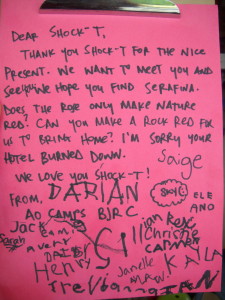 DEAR SHOCK-T,
THANK YOU SHOCK-T FOR THE NICE
PRESENT. WE WANT TO MEET YOU AND
WE HOPE YOU FIND SERAFINA.
DOES THE ROSE ONLY MAKE NATURE
RED? CAN YOU MAKE A ROCK RED FOR
US TO BRING HOME? I'M SORRY YOUR
HOTEL BURNED DOWN.
Saige
WE LOVE YOU SHOCK-T!
FROM, DARIAN
AO CAMPS BJRC
ELEANO
Jack
Sarah
Avery
GiLL
Christie
CARMEN
Henry
Janelle
KAILA
Max